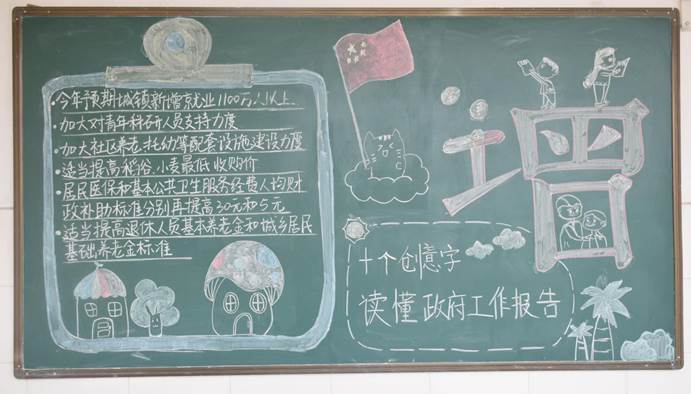 ·今年预期城镇新增就业1100万人以上
·加大对青年科研人员支持力度
·加大社区养老、托幼等配套设施建设力度
·适当提高稻谷、小麦最低收购价
·居民医保和基本公共卫生服务经费人均财
政补助标准分别再提高30元和5元
·适当提高退休人员基本养老金和城乡居民
基础养老金标准
增
十个创意字
读懂政府工作报告